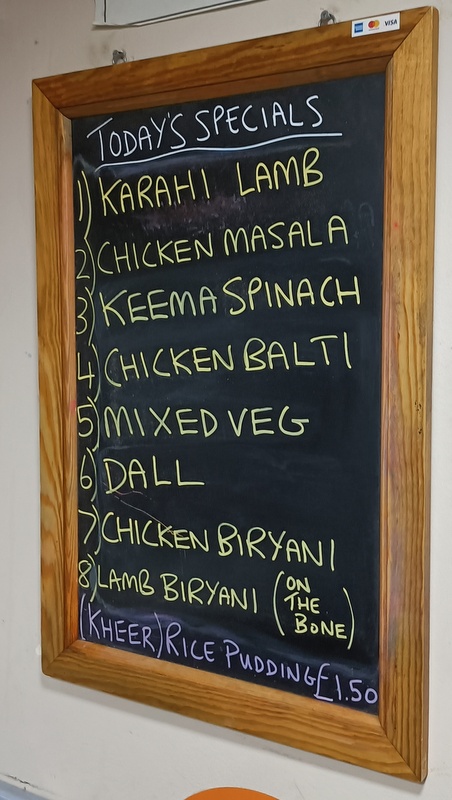 VISA
TODAY'S SPECIALS
1) KARAHI LAMB
2) CHICKEN MASALA
3) KEEMA SPINACH
4) CHICKEN BALTI
5) MIXED VEG
6) DALL
7) CHICKEN BIRYANI
8) LAMB BIRYANI (ON THE BONE)
(KHEER) RICE PUDDING £1.50